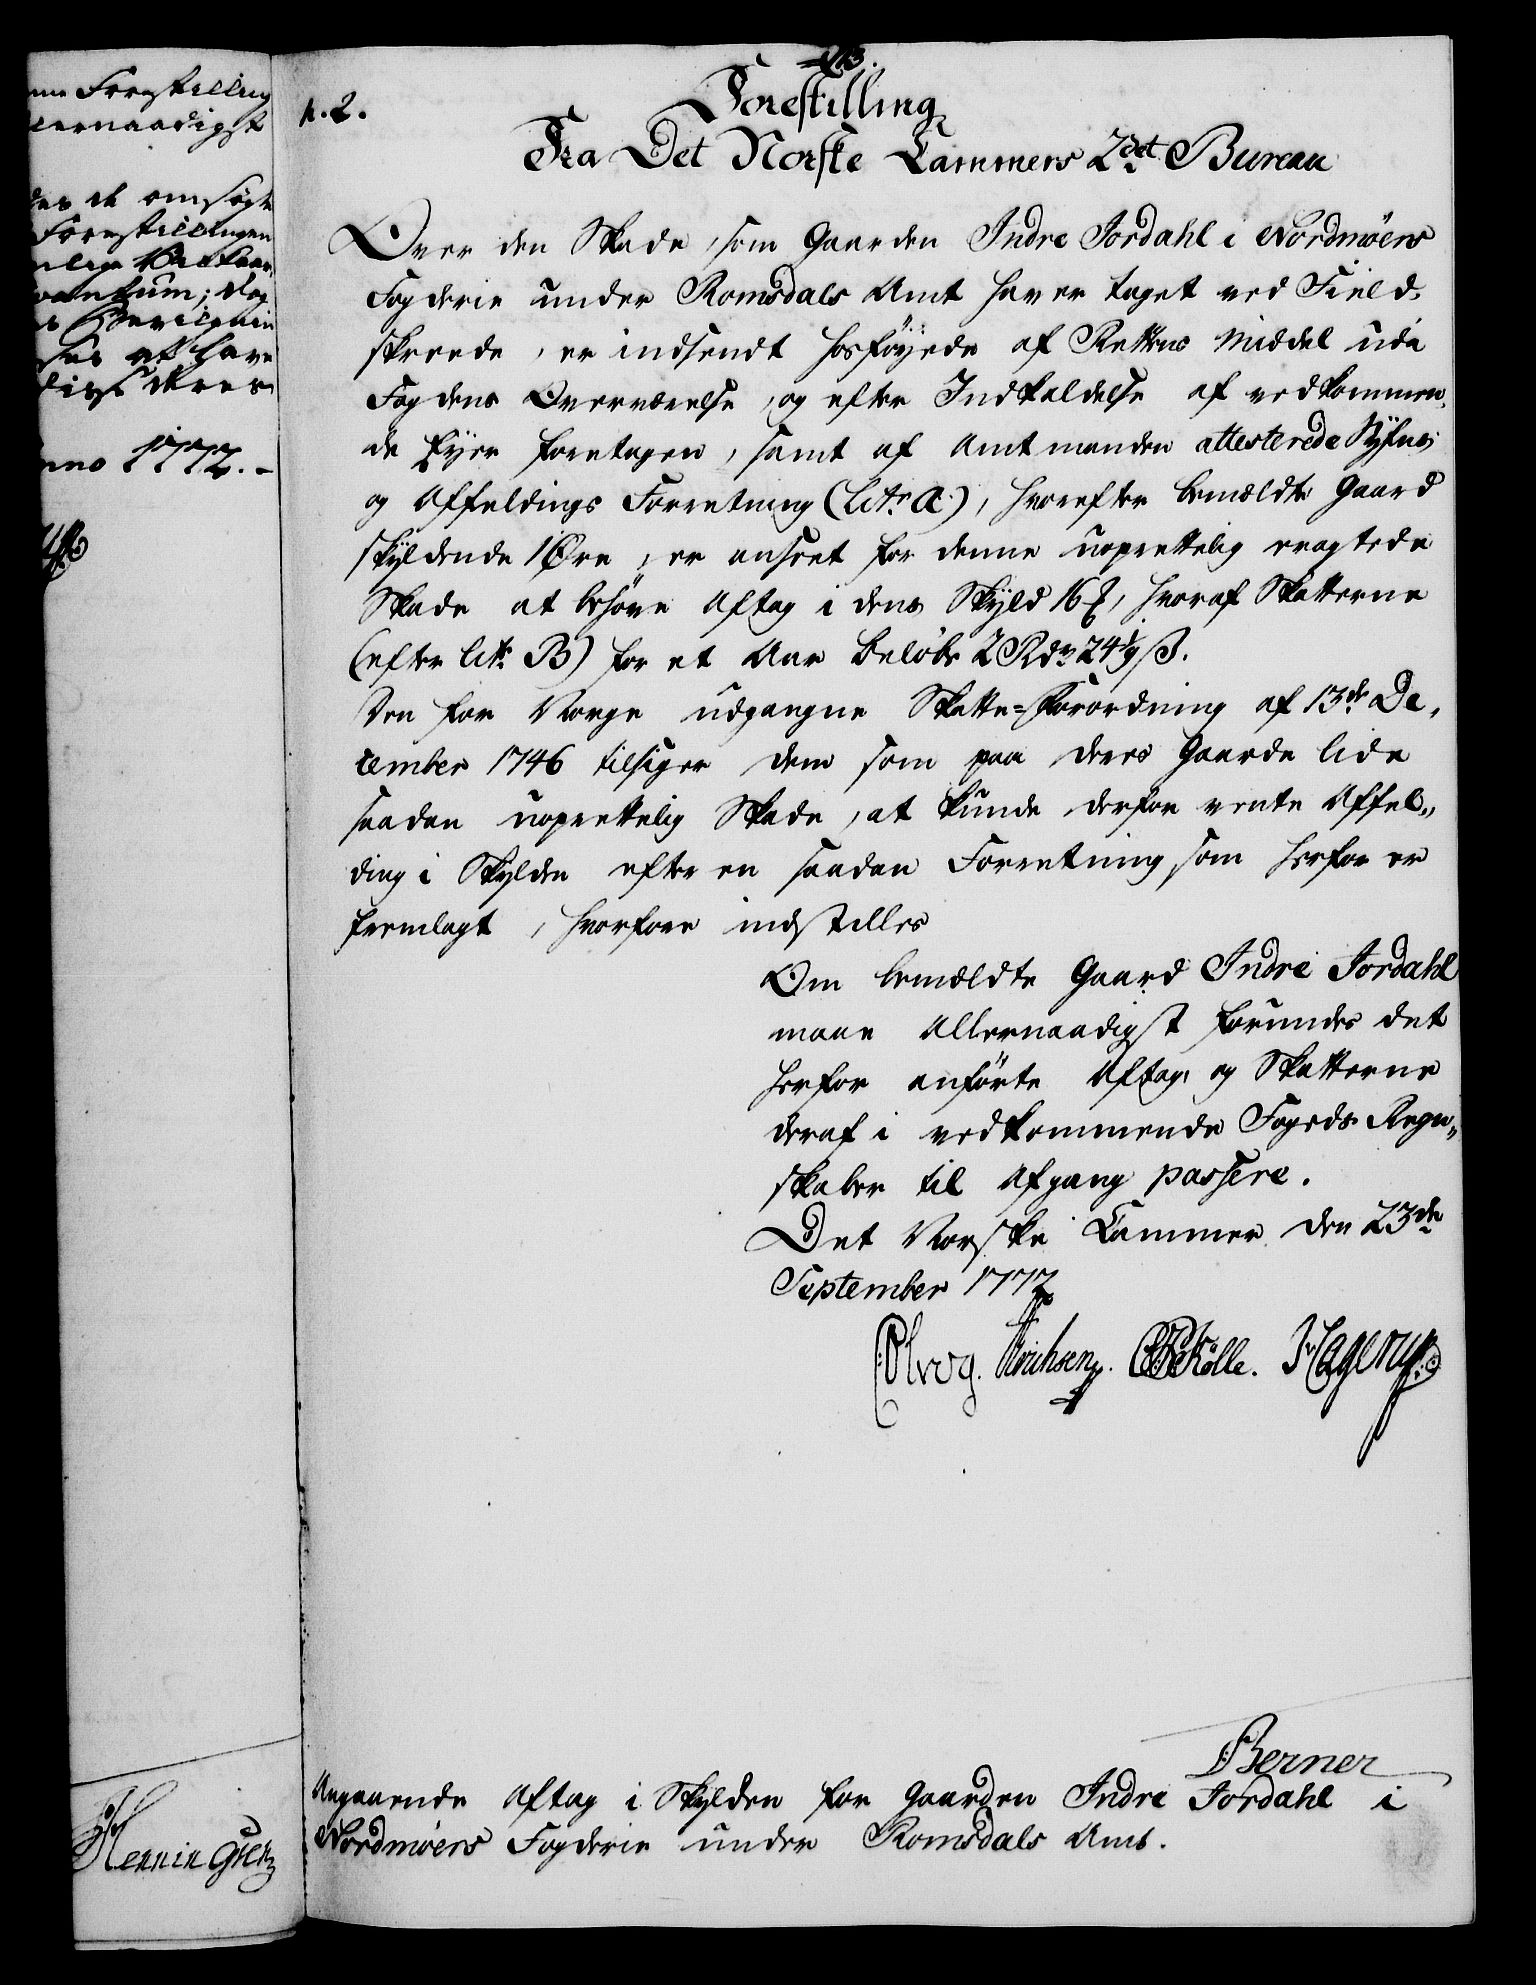 ne Forestilling
lernaadigst
des et ansøgte
Forestillingen
qvantum; dog
at have
nno 1772. -
Henningsen
43.
n. 2.
Forestilling
Fra Det Norske Cammers 2det Bureau
Over den Skade, som Gaarden Indre Jordahl i Nordmöers
Fogderie under Romsdals Amt haver taget ved Field-
skreede, er indsendt hosföyede af Rettens Middel udi
Fogdens Overværelse, og efter Indkaldelse af vedkommen-
de Eyer foretagen, samt af Amtmanden attesterede Syhns
og Affældings Forretning (Litr. A.), hvorefter bemældte Gaard
skyldende 1 Øre, er anseet for denne uoprettelig eragtede
Skade at behöve Aftag i dens Skyld 16 , hvoraf Skatterne
(efter Litr. B) for et Aar belöbe 2 Rdr 24½ ß.
Den for Norge udgangne Skatte=Forordning af 13de De-
cember 1746 tilsiger dem som paa deres Gaarde lide
saadan uoprettelig Skade, at kunde derfor vente Affel-
ding i Skylden efter en saadan Forretning, som herfor er
fremlagt, hvorfore indstilles
Om bemældte Gaard Indre Jordahl
maae Allernaadigst forundes det
herfor anförte Aftag, og Skatterne
deraf i vedkommende Fogeds Regn-
skaber til Afgang passere.
Det Norske Cammer den 23de
September 1772
Olrog. Ulrichsen. Selle. Hagerup
Berner
Angaaende Aftag i Skylden for Gaarden Indre Jordahl i
Nordmöers Fogderie under Romsdals Amt.